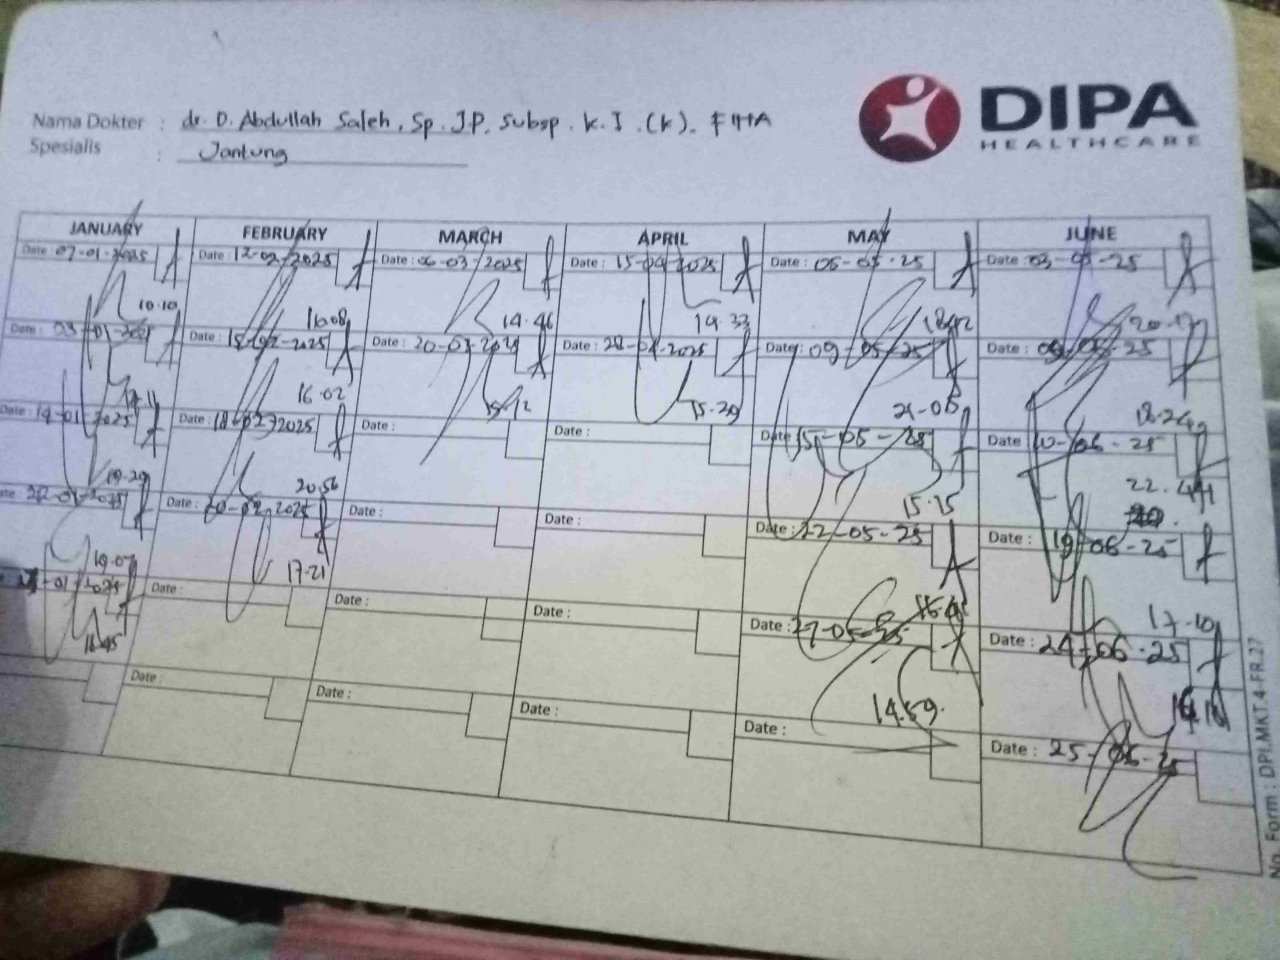 DIPA
HEALTHCARE
Nama Dokter : dr. D. Abdullah Saleh, Sp. J.P. Subsp. K.I. (K). FIHA
Spesialis : Jantung
JANUARY FEBRUARY MARCH APRIL MAY JUNE
Date : 07-01-2025 Date : 12-02-2025 Date : 06-03-2025 Date : 15-04-2025 Date : 05-05-25 Date : 03-
10.10 16.08 14.46 19.33 20.17
Date : Date : Date : 20-03- Date : Date : 09-05-25 Date :
16.02 15.12 15.29 21.06 18.24
Date : 14-01-2025 Date : 18-02-2025 Date : Date : Date : 15-05-25 Date : 10-06-25
19.29 20.56 15.15 22.41
Date : Date : 20-02-2025 Date : Date : Date : 22-05-25 Date : 19-06-25
19.07 17.21 17.10
Date : Date : Date : Date : 27-05-25 Date : 24-06-25
16.45 14.59
Date : Date : Date : Date : Date : 25-06-25
No. Form : DPI.MKT.4-FR.27